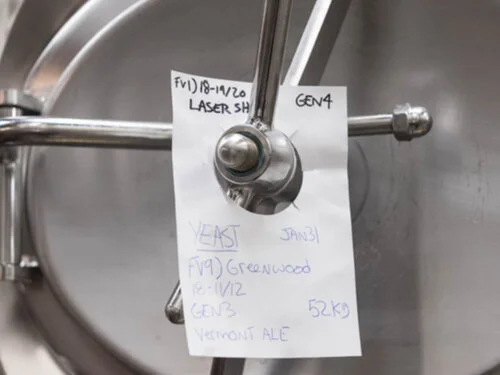 FV1) 18-19/20 GEN4
LASER SH
YEAST JAN31
FV9) Greenwood
18-11/12
GEN3 52Kg
Vermont ALE